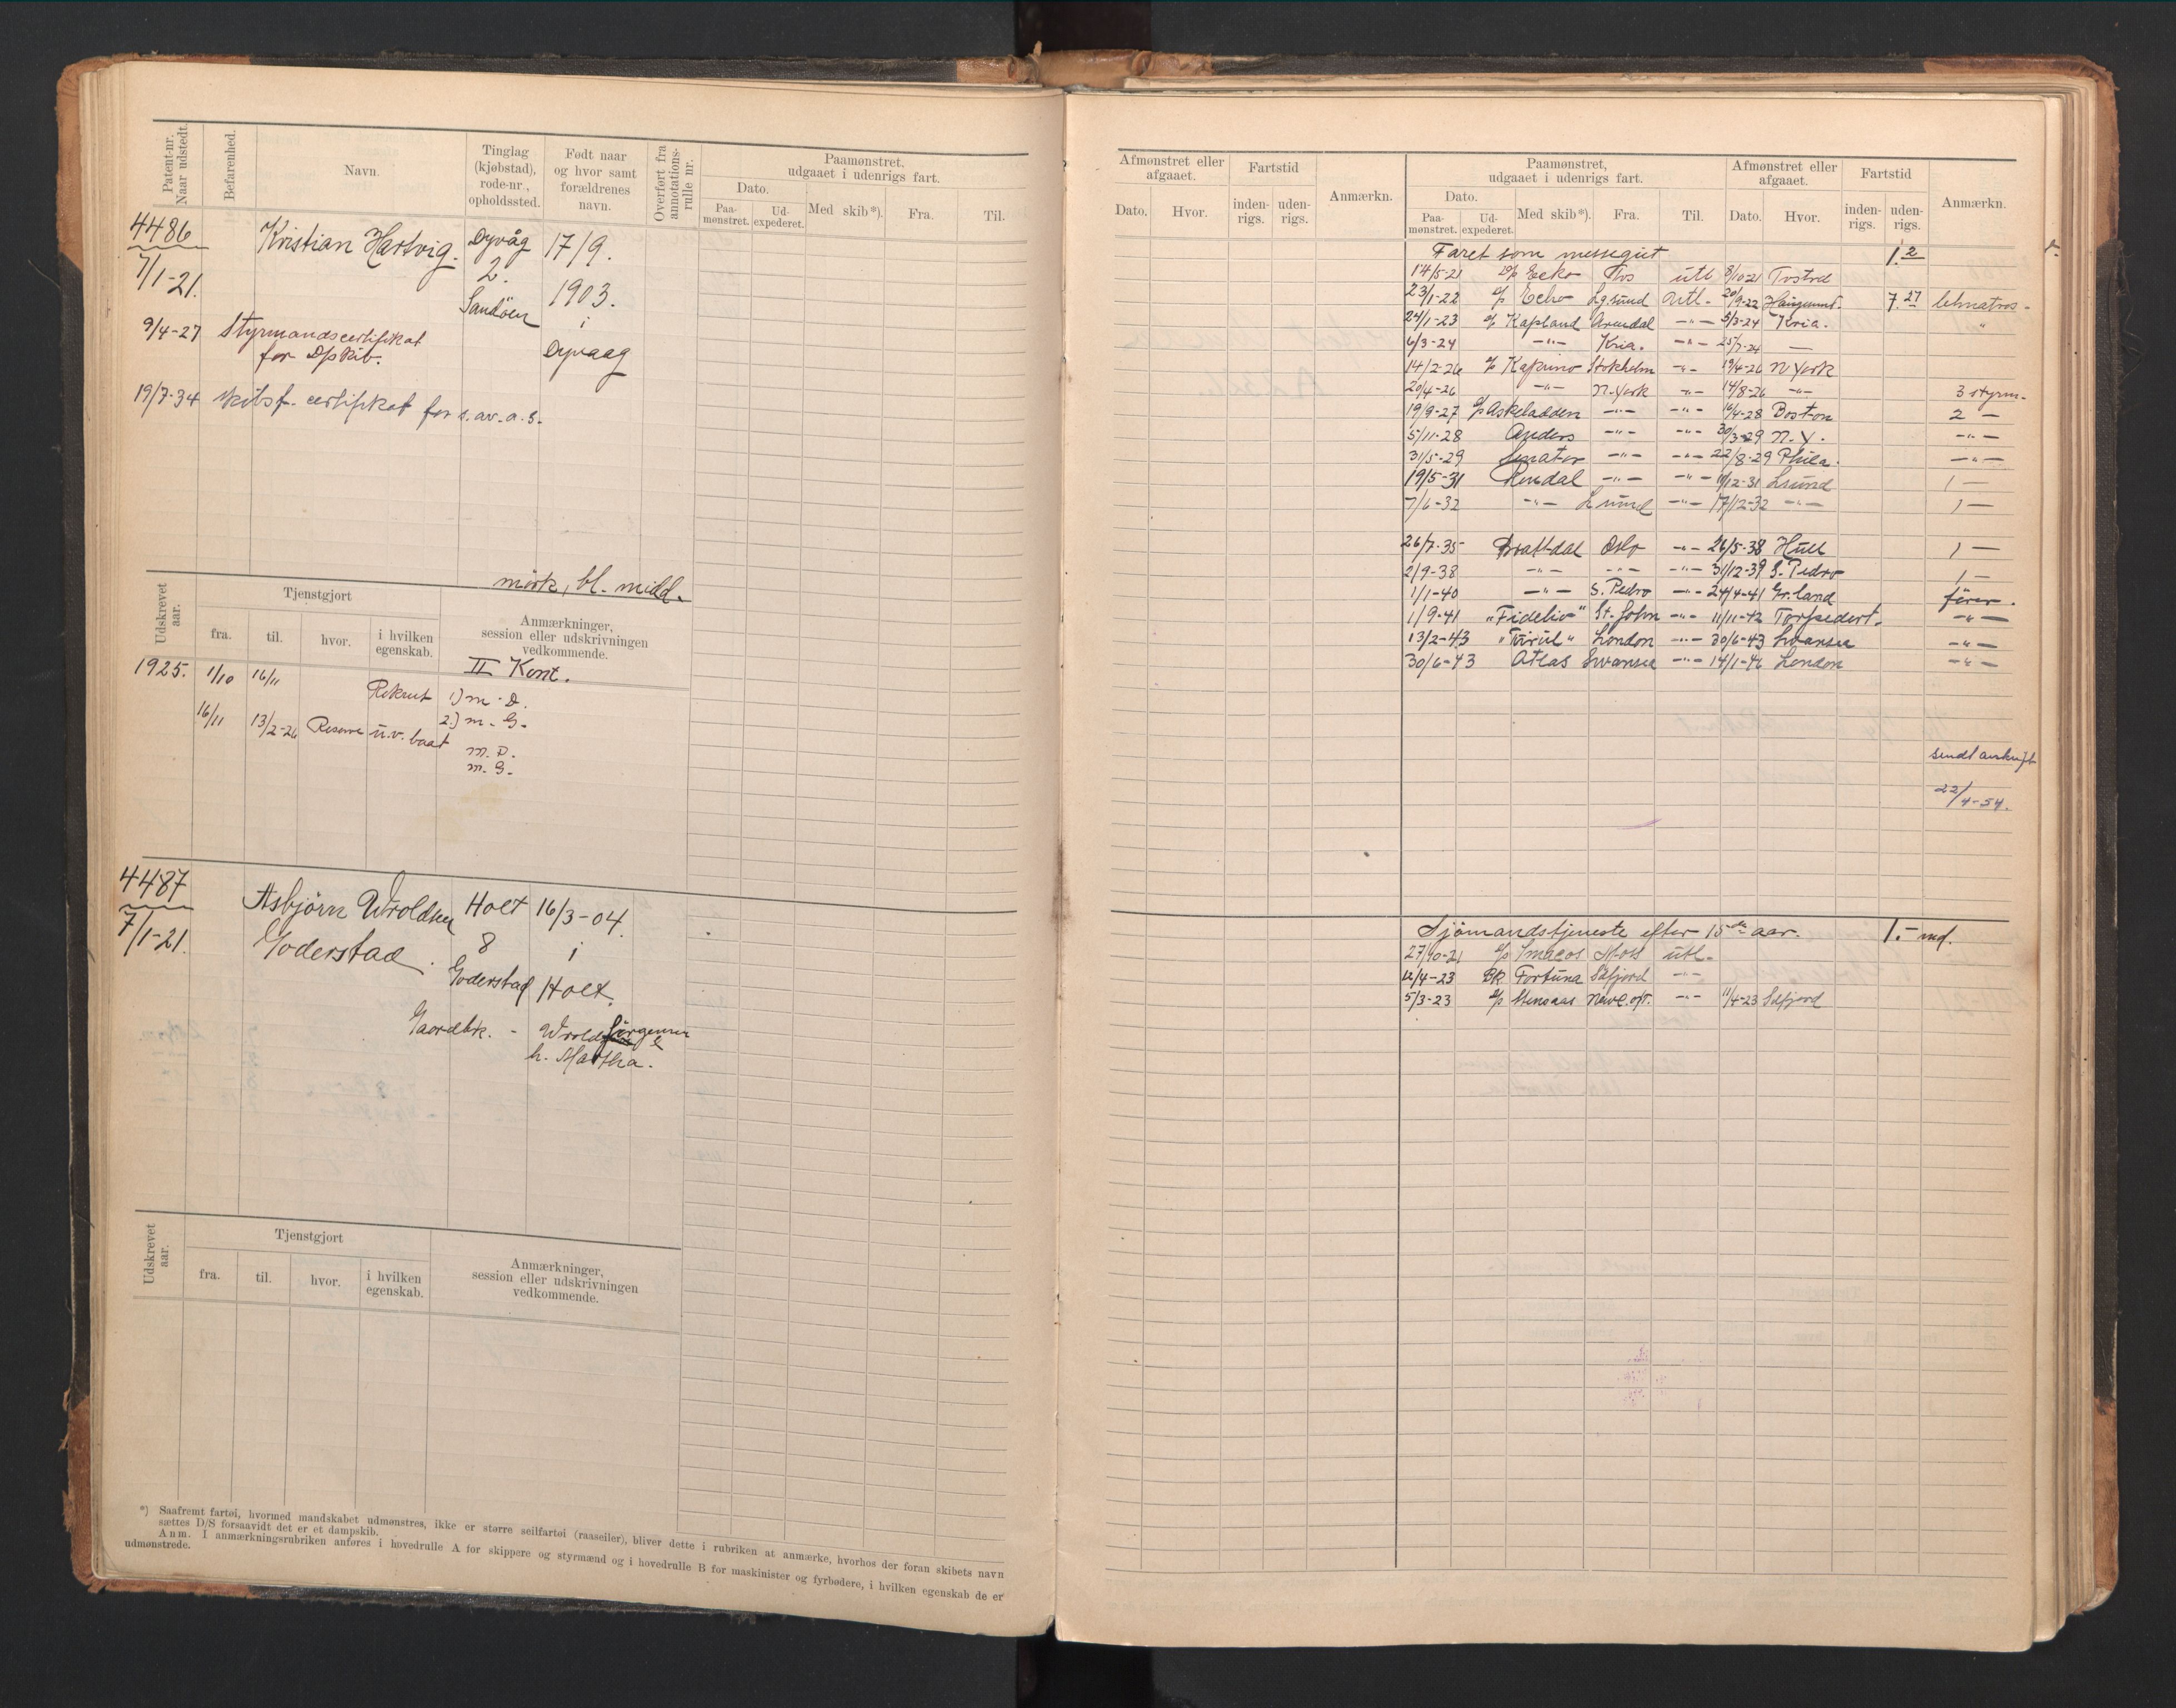 Patent-nr. Naar udstedt.
Befarenhed.
Navn.
Tinglag (kjøbstad), rode-nr., opholdssted.
Født naar og hvor samt forældrenes navn.
Overført fra annotations-rulle nr.
Paamønstret, udgaaet i udenrigs fart.
Dato.
Paa-mønstret.
Ud-expederet.
Med skib*).
Fra.
Til.
4486
7/1-21.
Kristian Hartvig.
Dyvåg
2.
Sandöen
17/9.
1903.
i
Dyvaag
9/4-27 Styrmandscertifikat
for D/skib.
19/7-34 skibsf. certifikat for s.av.a.s.
mörk, bl. midd.
Udskrevet aar.
Tjenstgjort
fra.
til.
hvor.
i hvilken egenskab.
Anmærkninger, session eller udskrivningen vedkommende.
II Kont.
1925. 1/10 16/11 Rekrut 1) m. D.
2.) m. G.
16/11 13/2-26 Reserve u.v. baat m. D.
m. G.
4487
7/1-21.
Asbjörn Wroldsen
Goderstad.
Holt
8
Goderstad
16/3-04.
i
Holt.
Gaardbr. - Wrold Jörgensen
h. Martha.
Udskrevet aar.
Tjenstgjort
fra.
til.
hvor.
i hvilken egenskab.
Anmærkninger, session eller udskrivningen vedkommende.
*) Saafremt fartøi, hvormed mandskabet udmønstres, ikke er større seilfartøi (raaseiler), bliver dette i rubriken at anmærke, hvorhos der foran skibets navn
sættes D/S forsaavidt det er et dampskib.
Anm. I anmærkningsrubriken anføres i hovedrulle A for skippere og styrmænd og i hovedrulle B for maskinister og fyrbødere, i hvilken egenskab de er
udmønstrede.
Afmønstret eller afgaaet.
Dato.
Hvor.
Fartstid
inden-rigs.
uden-rigs.
Anmærkn.
Paamønstret, udgaaet i udenrigs fart.
Dato.
Paa-mønstret.
Ud-expederet.
Med skib*).
Fra.
Til.
Afmønstret eller afgaaet.
Dato.
Hvor.
Fartstid
inden-rigs.
uden-rigs.
Anmærkn.
Faret som messegut 1.2
14/5-21 D/s Ecko Tvs utl 8/10 21 Tvstrd
23/1-22 Echo Lgsund utl. 20/9-22 7.27 letmatros -
24/1-23 Kapland Arendal -"- 5/3-24 Kria. "
6/3-24 -"- Kria. -"- 25/7-24 —
14/2-26 Kaprino Stokholm -"- 19/4-26 N York
20/4-26 -"- N.York -"- 14/8-26 -"- 3 styrm.
19/9-27 Askeladden -"- -"- 16/4-28 Boston 2 —
5/11-28 Anders -"- -"- 30/3-29 N.Y. -"-
31/5-29 Senator -"- -"- 22/8-29 Phila. -"-
19/5-31 Rendal -"- -"- 11/12-31 Lsund 1 —
7/6-32 -"- Lsund -"- 17/12-32 -"- 1 —
26/7-35 Brattdal Oslo -"- 26/5-38 Hull 1 —
2/9-38 -"- -"- -"- 31/12-39 S. Pedro 1 —
1/1-40 -"- S. Pedro -"- 24/4-41 Gr.land förer.
1/9-41 "Fidelio" St. John -"- 11/11-42 Torpedert. -"-
13/2-43 "Torul" London -"- 30/6-43 Swansea -"-
30/6-43 Atlas Swansea -"- 14/1-46 London -"-
sendt avskrift
22/4-54.
Sjömandstjeneste efter 15de aar. 1.- md.
27/10-21 Smaragd Moss utl.
12/4-23 Bk Fortuna Sdfjord -"-
5/3-23 Stensaas -"- 11/4-23 Sdfjord